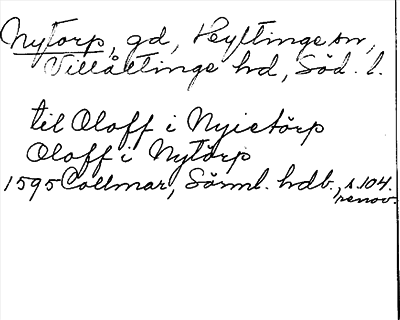 Nytorp, gd, Veyltinge sn,
Villåttinge hd, Söd. l.
til Oloff i Nyietörp
Oloff i Nytörp
1595 Collmar, Sörml. hdb., s. 104.
renov.